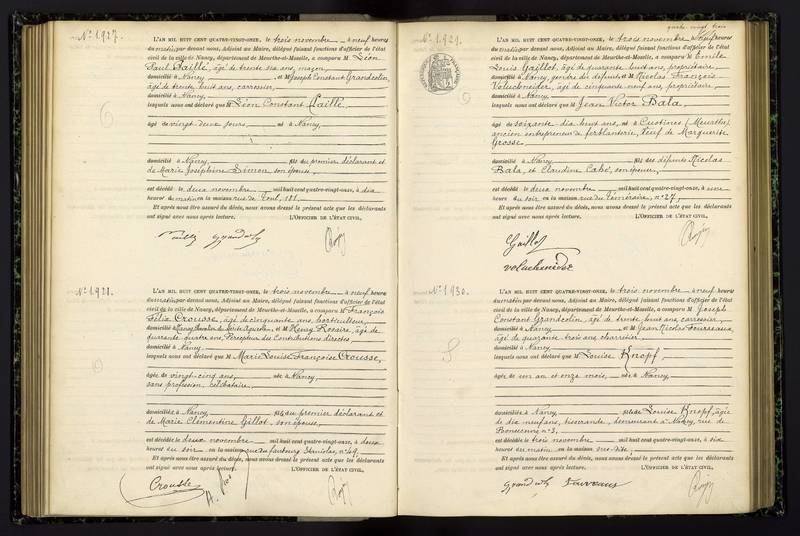 N° 1927.
L'AN MIL HUIT CENT QUATRE-VINGT-ONZE, le trois novembre à neuf heures
du matin, par devant nous, Adjoint au Maire, délégué faisant fonctions d'officier de l'état
civil de la ville de Nancy, département de Meurthe-et-Moselle, a comparu M. Léon
Paul Haillé, âgé de trente six ans, maçon,
domicilié à Nancy et M. Joseph Constant Grandcolin,
âgé de trente huit ans, carrossier,
domicilié à Nancy,
lesquels nous ont déclaré que M. Léon Constant Haillé
âgé de vingt deux jours né à Nancy,
domicilié à Nancy, fils du premier déclarant et
de Marie Joséphine Simon, son épouse,
est décédé le deux novembre mil huit cent quatre-vingt-onze, à dix
heures du matin en la maison rue de Toul, 181.
Et après nous être assuré du décès, nous avons dressé le présent acte que les déclarants
ont signé avec nous après lecture. L'OFFICIER DE L'ÉTAT CIVIL,
N° 1928.
L'AN MIL HUIT CENT QUATRE-VINGT-ONZE, le trois novembre à neuf heures
du matin, par devant nous, Adjoint au Maire, délégué faisant fonctions d'officier de l'état
civil de la ville de Nancy, département de Meurthe-et-Moselle, a comparu M. François
Félix Crousse, âgé de cinquante ans, horticulteur,
domicilié à Nancy, Chevalier du Mérite Agricole, et M. Henry Rosaire, âgé de
quarante quatre ans, Percepteur des Contributions directes,
domicilié à Nancy,
lesquels nous ont déclaré que M. Marie Louise Françoise Crousse,
âgée de vingt-cinq ans, née à Nancy,
sans profession, célibataire,
domiciliée à Nancy, fille du premier déclarant et
de Marie Clémentine Gillot, son épouse,
est décédée le deux novembre mil huit cent quatre-vingt-onze, à deux
heures du soir en la maison rue du faubourg Stanislas, n° 49.
Et après nous être assuré du décès, nous avons dressé le présent acte que les déclarants
ont signé avec nous après lecture. L'OFFICIER DE L'ÉTAT CIVIL,
Crousse
quatre vingt trois
N° 1929.
L'AN MIL HUIT CENT QUATRE-VINGT-ONZE, le trois novembre à neuf heures
du matin, par devant nous, Adjoint au Maire, délégué faisant fonctions d'officier de l'état
civil de la ville de Nancy, département de Meurthe-et-Moselle, a comparu M. Emile
Louis Gaillot, âgé de quarante huit ans, propriétaire,
domicilié à Nancy, gendre du défunt et M. Nicolas François
âgé de cinquante neuf ans, propriétaire,
domicilié à Nancy,
lesquels nous ont déclaré que M. Jean Victor Bala
âgé de soixante dix huit ans, né à Custines (Meurthe)
ancien entrepreneur de ferblanterie, veuf de Marguerite
Grosse
domicilié à Nancy fils des défunts Nicolas
Bala, et Claudine Labé, son épouse,
est décédé le deux novembre mil huit cent quatre-vingt-onze, à une
heure du soir en la maison rue du Téméraire, n° 27.
Et après nous être assuré du décès, nous avons dressé le présent acte que les déclarants
ont signé avec nous après lecture. L'OFFICIER DE L'ÉTAT CIVIL,
Gaillot
N° 1930.
L'AN MIL HUIT CENT QUATRE-VINGT-ONZE, le trois novembre à neuf heures
du matin, par devant nous, Adjoint au Maire, délégué faisant fonctions d'officier de l'état
civil de la ville de Nancy, département de Meurthe-et-Moselle, a comparu M. Joseph
Constant Grandcolin, âgé de trente huit ans, carrossier,
domicilié à Nancy et M. Jean Nicolas
âgé de quarante trois ans, charretier,
domicilié à Nancy
lesquels nous ont déclaré que M. Louise Knopf,
âgée de un an et onze mois, née à Nancy,
domiciliée à Nancy, fille de Louise Knopf, âgée
de dix neuf ans, tisserande, demeurant à Nancy, rue de
Bonsecours n° 3,
est décédée le trois novembre mil huit cent quatre-vingt-onze, à six
heures du matin en la maison sus-dite.
Et après nous être assuré du décès, nous avons dressé le présent acte que les déclarants
ont signé avec nous après lecture. L'OFFICIER DE L'ÉTAT CIVIL,